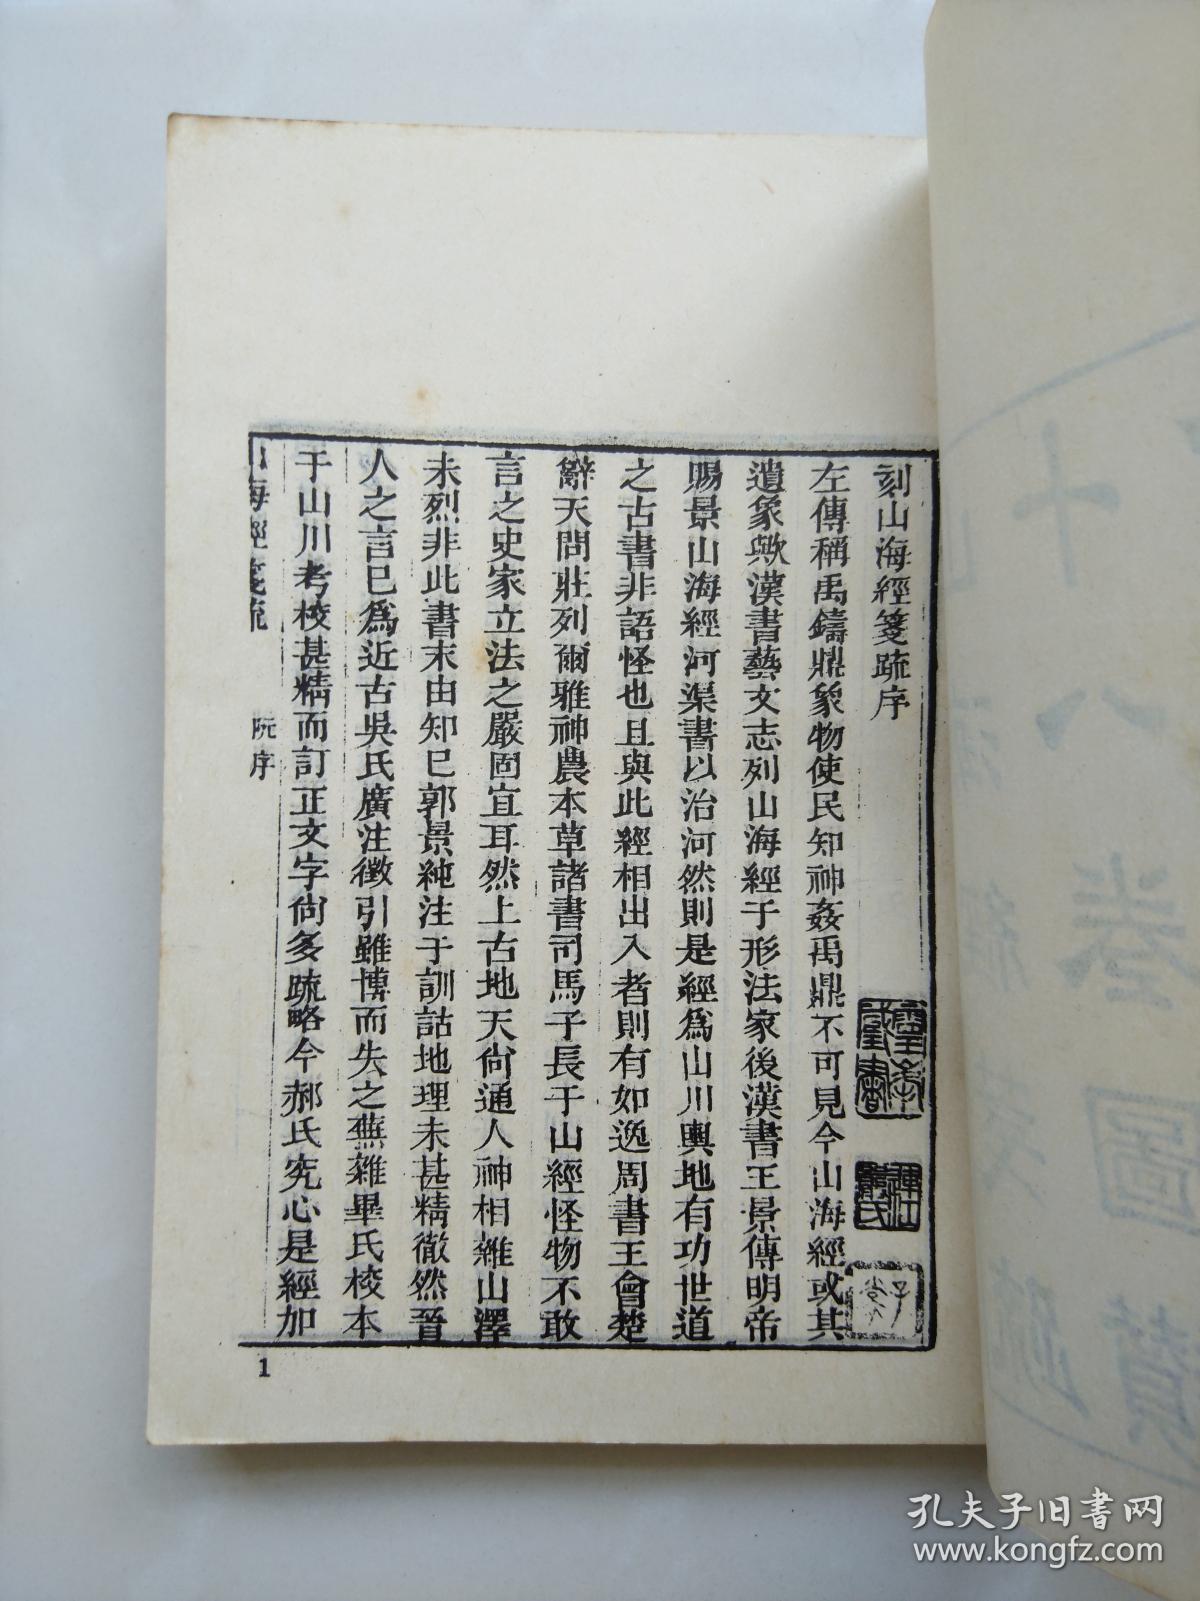 刻山海經箋疏序
左傳稱禹鑄鼎象物使民知神姦禹鼎不可見今山海經或其
遺象歟漢書藝文志列山海經于形法家後漢書王景傳明帝
賜景山海經河渠書以治河然則是經爲山川輿地有功世道
之古書非語怪也且與此經相出入者則有如逸周書王會楚
辭天問莊列爾雅神農本草諸書司馬子長于山經怪物不敢
言之史家立法之嚴固宜耳然上古地天尙通人神相雜山澤
未烈非此書末由知已郭景純注于訓詁地理未甚精徹然晉
人之言已爲近古吳氏廣注徵引雖博而失之蕪雜畢氏校本
于山川考校甚精而訂正文字尙多疏略今郝氏究心是經加
山海經箋疏
阮序
1
十八卷圖讚
孔夫子旧书网
www.kongfz.com